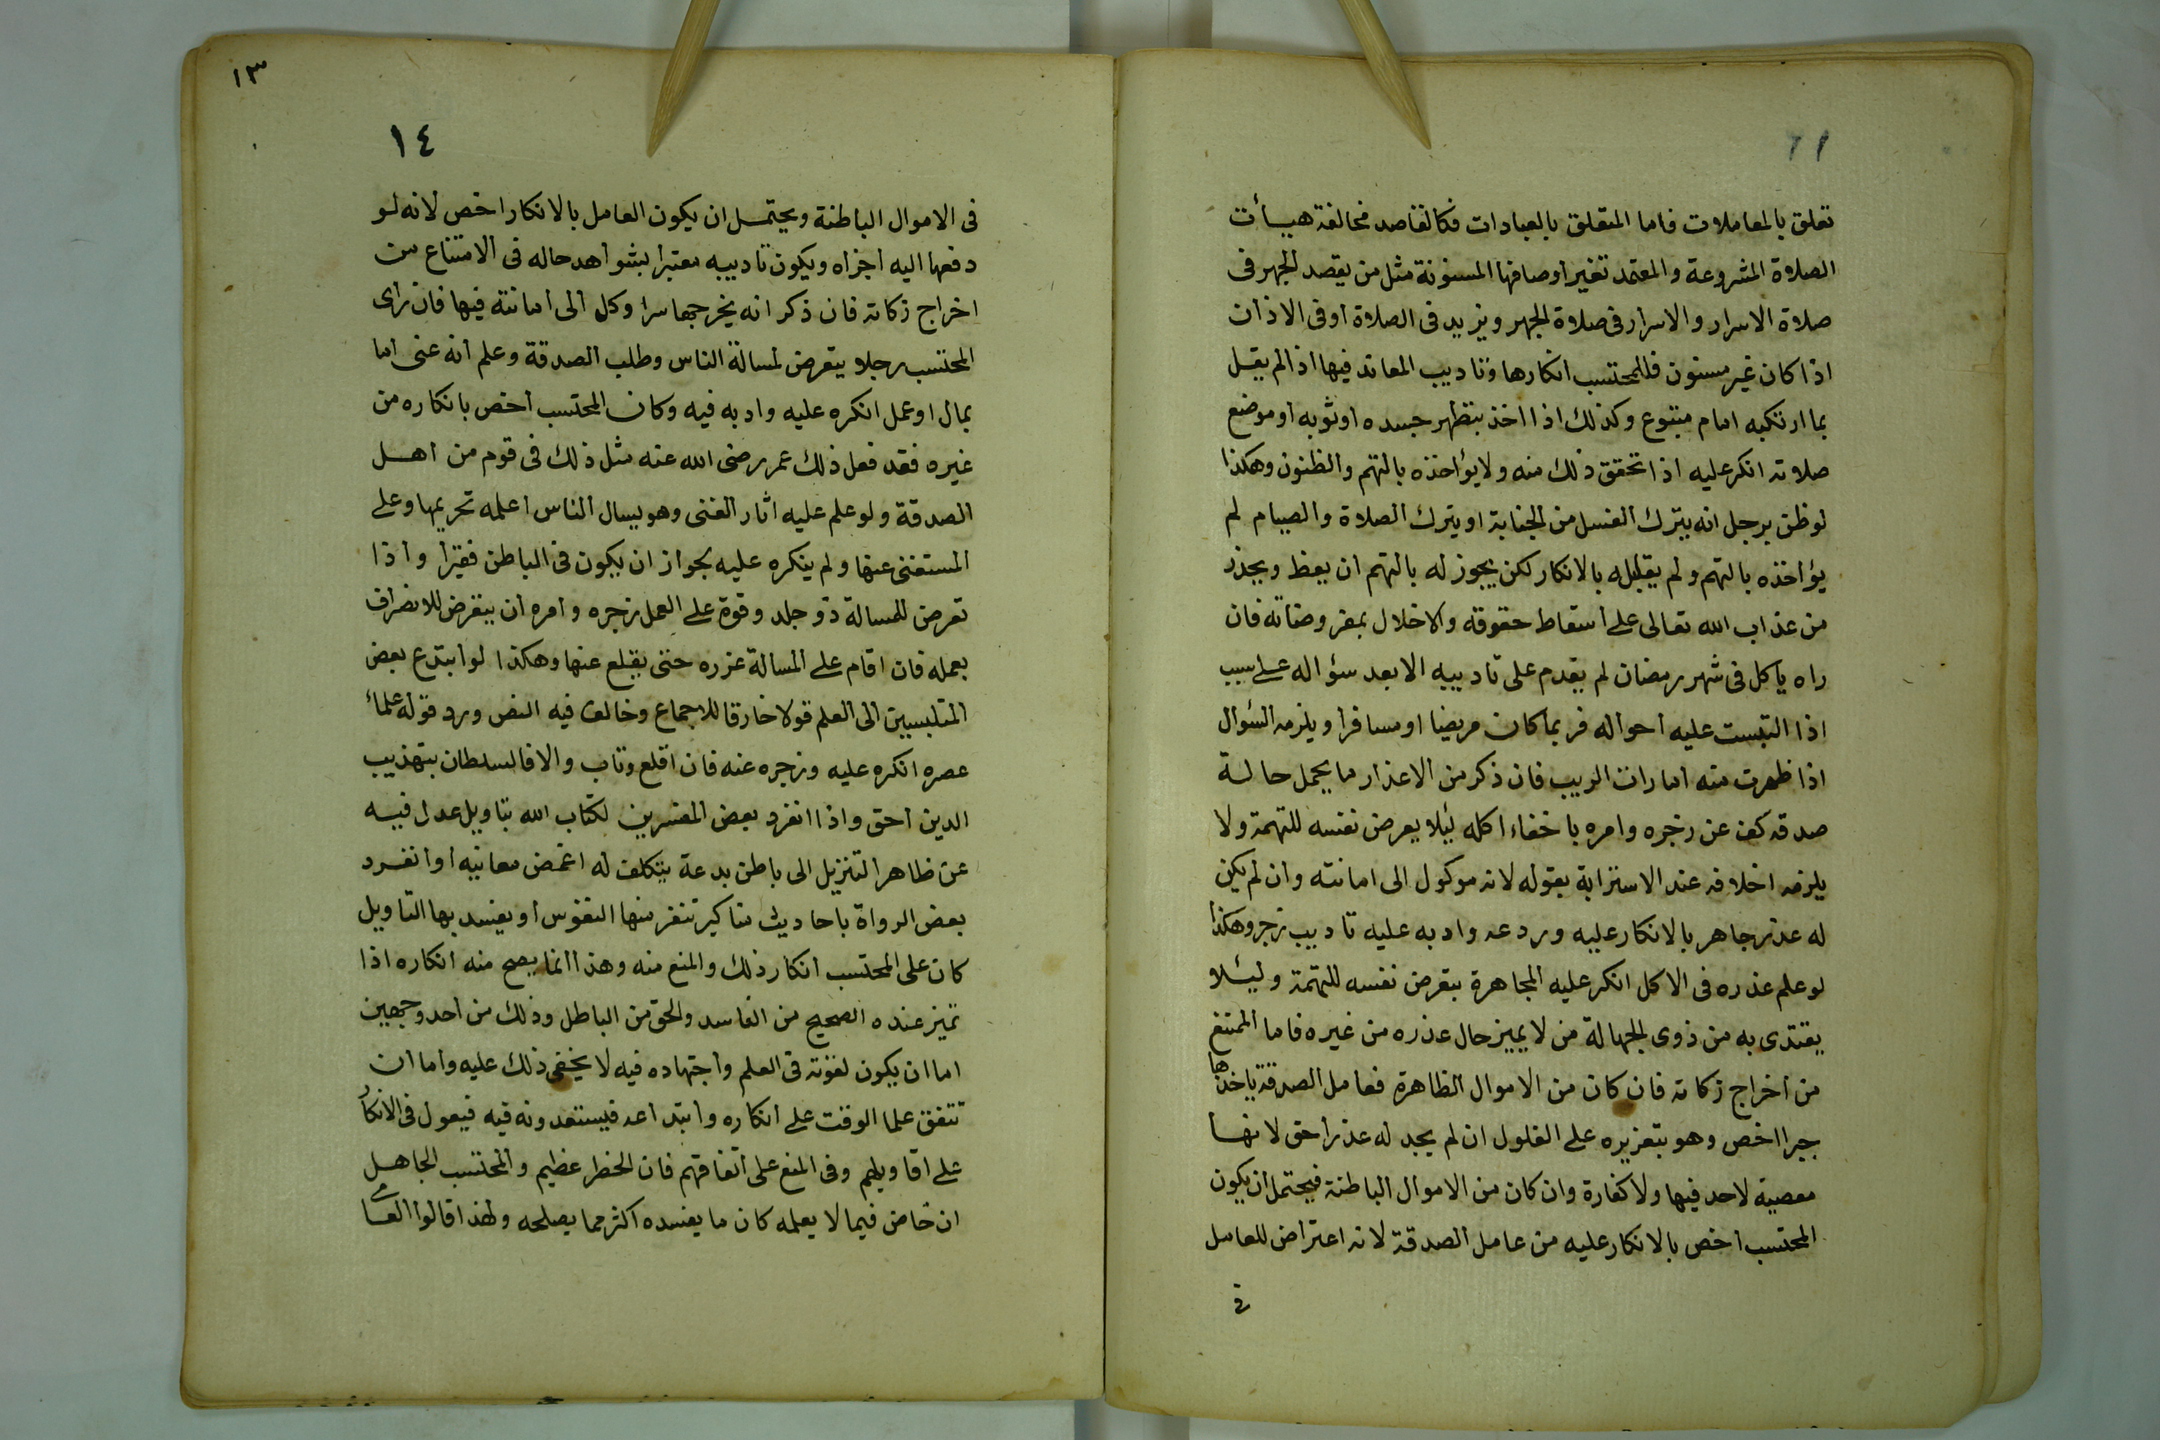 تعلق بالمعاملات فاما المتعلق بالعبادات فكالقاصد مخالفة هيأت
الصلاة المشروعة والمعتمد تغير اوصافها المسنونة مثل من يقصد الجهر فى
صلاة الاسرار والاسرار فى صلاة الجهر ويزيد فى الصلاة او فى الاذان
اذا كان غير مسنون فللمحتسب انكارها وتاديب المعاند فيها اذا لم يقل
بما ارتكبه امام متبوع وكذلك اذا اخذ بتطهر جسده او ثوبه او موضع
صلاته انكر عليه اذا تحقق ذلك منه ولا يؤاخذه بالتهم والظنون وهكذا
لو ظن برجل انه يترك الغسل من الجنابة او يترك الصلاة والصيام لم
يؤاخذه بالتهم ولم يقابله بالانكار لكن يجوز له بالتهم ان يعظ ويحذر
من عذاب الله تعالى على اسقاط حقوقه والاخلال بمفروضاته فان
راه ياكل فى شهر رمضان لم يقدم على تاديبه الا بعد سؤاله على سبب
اذا التبست عليه احواله فربما كان مريضا او مسافرا ويلزمه السؤال
اذا ظهرت منه امارات الريب فان ذكر من الاعذار ما يحمل حالة
صدقه كف عن زجره وامره باخفاء اكله ليلا يعرض نفسه للتهمة ولا
يلزمه اخلافه عند الاسترابة بقوله لانه موكول الى امانته وان لم يكن
له عذر جاهر بالانكار عليه وردعه وادبه عليه تاديب زجر وهكذا
لو علم عذره فى الاكل انكر عليه المجاهرة بتعرض نفسه للتهمة وليئلا
يقتدى به من ذوى الجهالة من لا يميز حال عذره من غيره فاما الممتنع
من اخراج زكاته فان كان من الاموال الظاهرة فعامل الصدقة ياخذها
جبرا اخص وهو بتعزيره على الغلول ان لم يجد له عذرا حق لانها
معصية لاحد فيها ولا كفارة وان كان من الاموال الباطنة فيحتمل ان يكون
المحتسب اخص بالانكار عليه من عامل الصدقة لانه اعتراض للعامل
فى
١٣
١٤
فى الاموال الباطنة ويحتمل ان يكون العامل بالانكار اخص لانه لو
دفعها اليه اجزاه ويكون تاديبه معتبرا بشواهد حاله فى الامتناع من
اخراج زكاته فان ذكر انه يخرجها سرا وكل الى امانته فيها فان راى
المحتسب رجلا يتعرض لمسالة الناس وطلب الصدقة وعلم انه غنى اما
بمال او عمل انكره عليه وادبه فيه وكان المحتسب اخص بانكاره من
غيره فقد فعل ذلك عمر رضى الله عنه مثل ذلك فى قوم من اهل
الصدقة ولو علم عليه اثار الغنى وهو يسال الناس اعلمه تحريمها على
المستغنى عنها ولم ينكره عليه بجواز ان يكون فى الباطن فقيرا واذا
تعرض للمسالة ذو جلد وقوة على العمل زجره وامره ان يتعرض للانصراف
بعمله فان اقام على المسالة عزره حتى يقلع عنها وهكذا لو ابتدع بعض
المتلبسين الى العلم قولا خارقا للاجماع وخالف فيه النص ورد قوله علماء
عصره انكره عليه وزجره عنه فان اقلع وتاب والا فالسلطان بتهذيب
الدين احق واذا انفرد بعض المفسرين لكتاب الله بتاويل عدل فيه
عن ظاهر التنزيل الى باطن بدعة يتكلف له اغمض معانيه او انفرد
بعض الرواة باحاديث مناكير تنفر منها النفوس او يفسد بها التاويل
كان على المحتسب انكار ذلك والمنع منه وهذا انما يصح منه انكاره اذا
تميز عنده الصحيح من الفاسد والحق من الباطل وذلك من احد وجهين
اما ان يكون لقوته فى العلم واجتهاده فيه لا يخفى ذلك عليه واما ان
تتفق علما الوقت على انكاره وابتداعه فيستعدونه فيه فيعول فى الانكار
على اقاويلهم وفى المنع على اتفاقهم فان الخطر عظيم والمحتسب الجاهل
ان خاض فيما لا يعلمه كان ما يفسده اكثر مما يصلحه ولهذا قالوا العامى